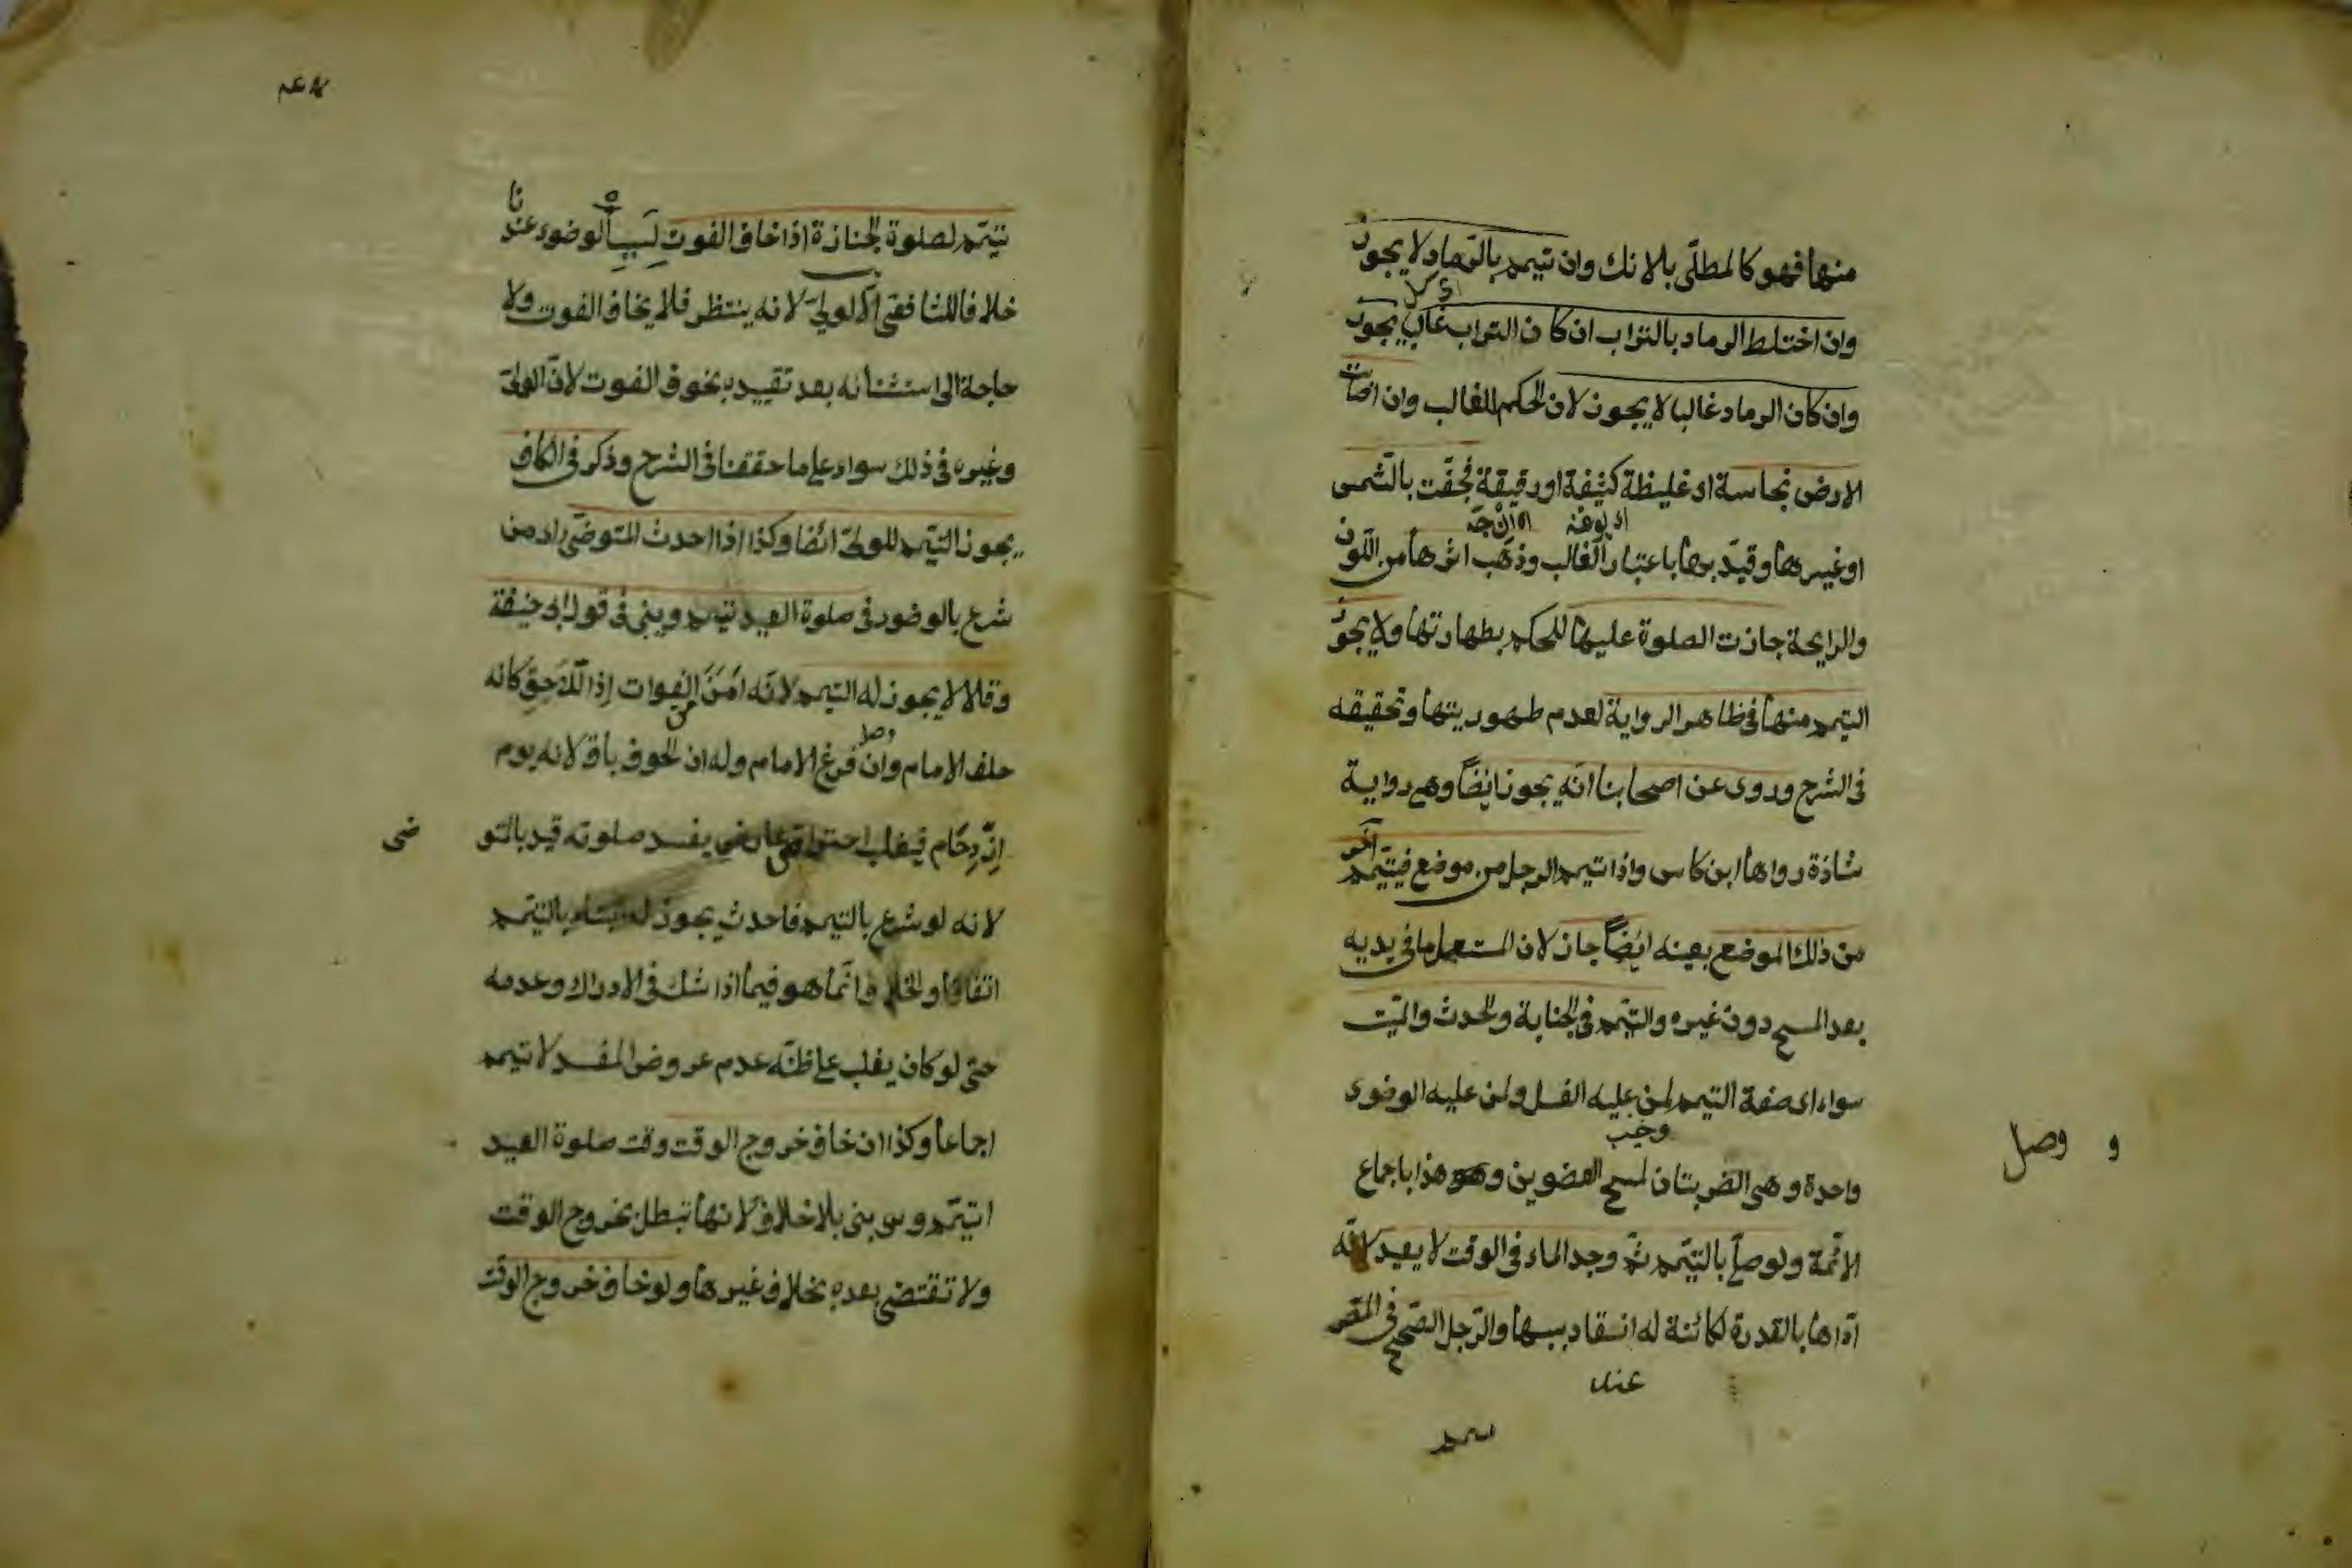 منها فهو كالمطلّى بالانك وان تيمم بالرّماد لا يجوز
وان اختلط الرماد بالتراب ان كان التراب غالب يجوز
وان كان الرماد غالبا لا يجوز لان الحكم للغالب وان اصابت
الارض نجاسة اى غليظة كثيفة اورقيقة فجفّت بالشّمس
اوغيرها وقيّد بها باعتبار الغالب وذهب اثرها من اللّون
والرايحة جازت الصلوة عليها للحكم بطهارتها ولا يجوز
التيمم منها فى ظاهر الرواية لعدم طهوريتها وتحقيقه
فى الشرح وروى عن اصحابنا انّه يجوز ايضاً وهى رواية
شاذة رواها ابن كاس واذا تيمم الرجل من موضع فيتيمّم آخر
من ذلك الموضع بعينه ايضاً جاز لان المستعمل ما فى يديه
بعد المسح دون غيره والتيمّم فى الجنابة والحدث والميّت
سواء اى صفة التيمم لمن عليه الغسل ولمن عليه الوضوء
واحدة وهى الضربتان لمسح العضوين وهو هذا باجماع
الائمة ولو صلّى بالتيمّم ثمّ وجد الماء فى الوقت لا يعيد لانّه
ادّاها بالقدرة الكائنة له انعقاد سببها والرّجل الصّحيح فى المصر
عند
و وصل
يتيمّم لصلوة الجنازة اذا خاف الفوت الوضوء عندنا
خلافا للشافعى الا لولىّ لانه ينتظر فلا يخاف الفوت ولا
حاجة الى استثنائه بعد تقييده بخوف الفوت لانّ الولىّ
وغيره فى ذلك سواء على ما حققنا فى الشرح وذكر فى الكافى
يجوز التيمم للولىّ ايضا وكذا اذا احدث المتوضّى اى من
شرع بالوضوء فى صلوة العيد تيمم ويبنى فى قول ابى حنيفة
وقالا لا يجوز له التيمم لانّه امن من الفوات اذ اللّاحق كانه
خلف الامام وان فرغ الامام وله ان الخوف باق لانه يوم
ازدحام فيغلب عارض يفسد صلوته قيد بالتوضى
لانه لو شرع بالتيمم فاحدث يجوز له بالتيمم
اتفاقا والخلاف انّما هو فيما اذا شك فى الادراك وعدمه
حتى لو كان يغلب على ظنّه عدم عروض المفسد لا تيمم
اجماعا وكذا ان خاف خروج الوقت وقت صلوة العيد
تيمّم وبنى بلا خلاف لانها تبطل بخروج الوقت
ولا تقتضى بعده بخلاف غيرها ولو خاف خروج الوقت